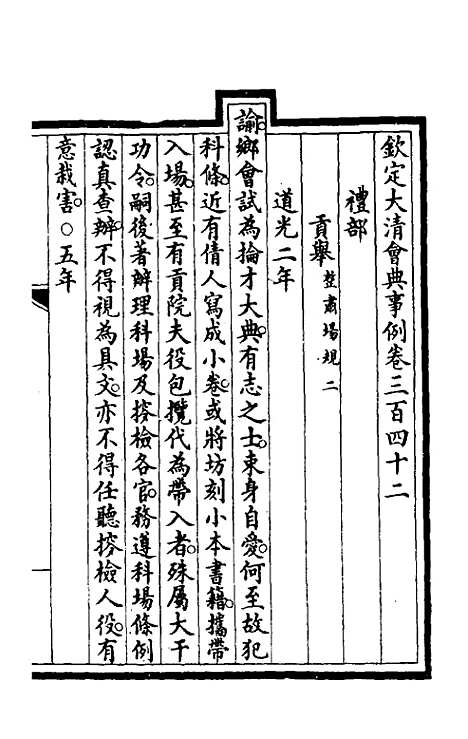 欽定大清會典事例卷三百四十二
禮部
貢舉整肅場規二
道光二年
諭。鄉會試為掄才大典。有志之士。束身自愛。何至故犯
科條。近有倩人寫成小卷。或將坊刻小本書籍。攜帶
入場。甚至有貢院夫役包攬代為帶入者。殊屬大干
功令。嗣後著辦理科場及搜檢各官。務遵科場條例
認真查辦。不得視為具文。亦不得任聽搜檢人役。有
意栽害。○五年